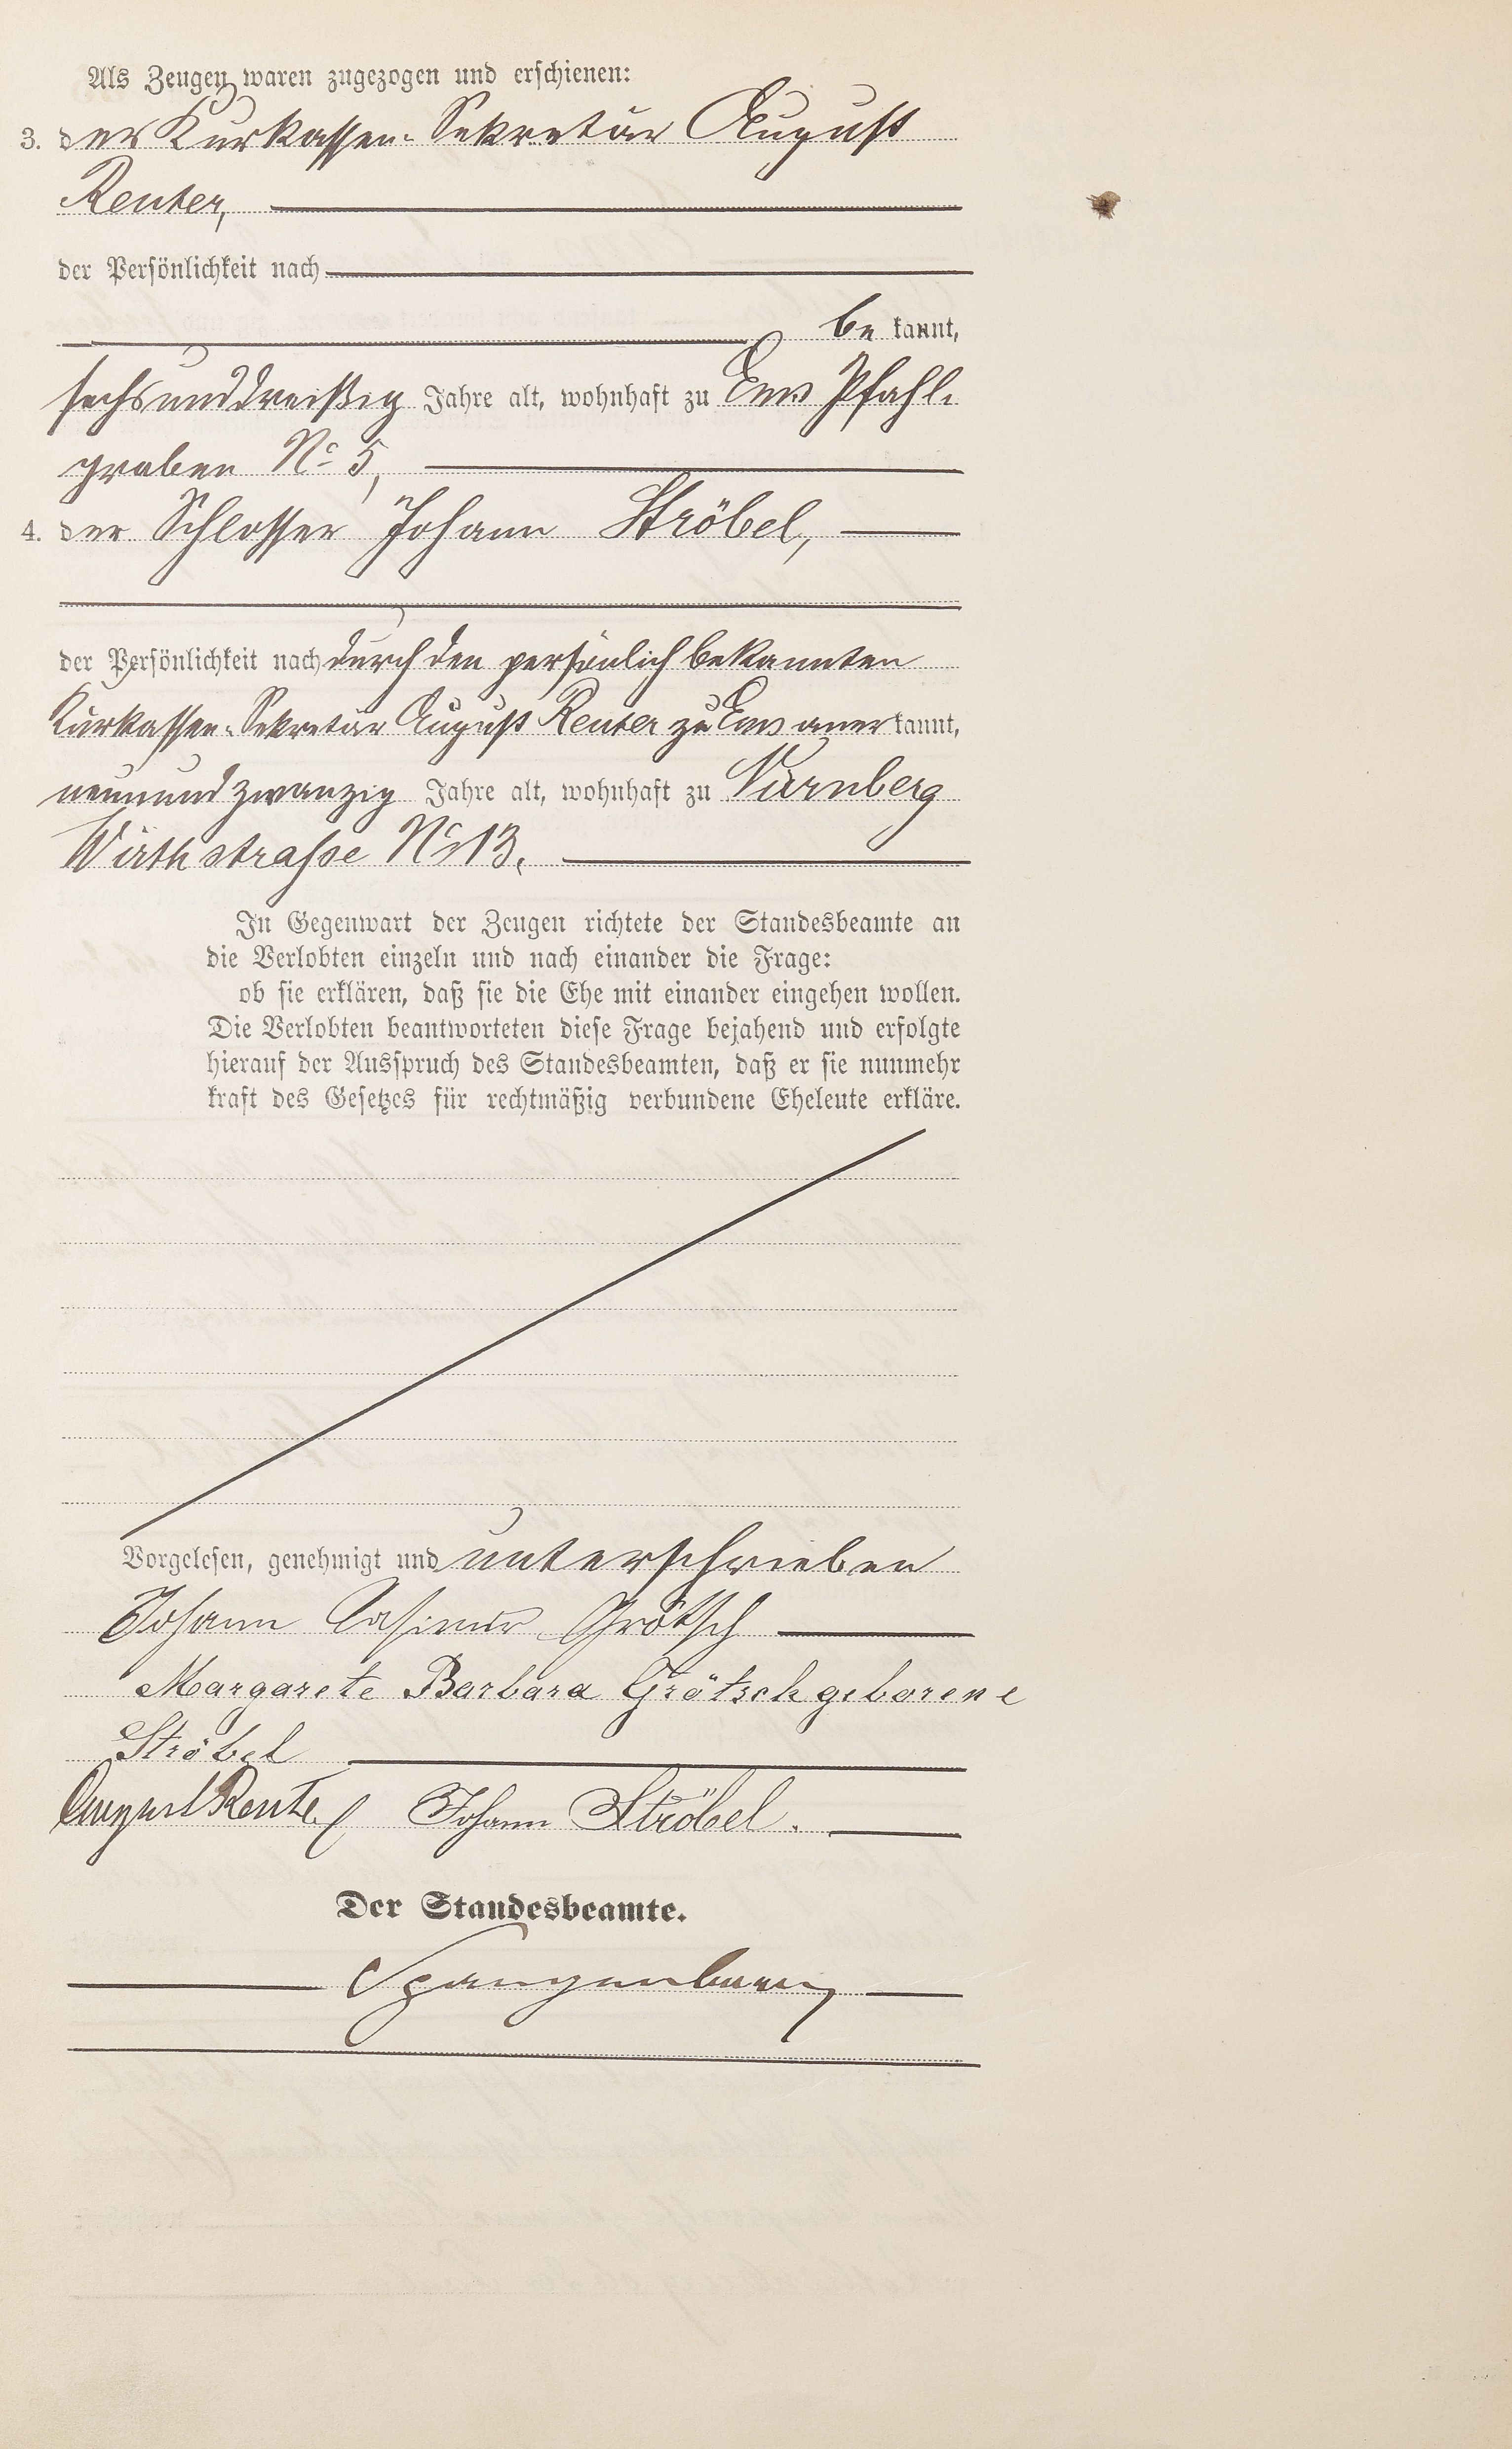 Als Zeugen waren zugezogen und erschienen:
3. der Kurkassen-Sekretär August
Reuter,
der Persönlichkeit nach
be kannt,
sechsunddreißig Jahre alt, wohnhaft zu Ems Pfahl-
graben No 5,
4. der Schlosser Johann Ströbel,
der Persönlichkeit nach durch den persönlich bekannten
Kurkassen-Sekretär August Reuter zu Ems aner kannt,
neunundzwanzig Jahre alt, wohnhaft zu Nürnberg
Wirthstrasse No 13.
In Gegenwart der Zeugen richtete der Standesbeamte an
die Verlobten einzeln und nach einander die Frage:
ob sie erklären, daß sie die Ehe mit einander eingehen wollen.
Die Verlobten beantworteten diese Frage bejahend und erfolgte
hierauf der Ausspruch des Standesbeamten, daß er sie nunmehr
kraft des Gesetzes für rechtmäßig verbundene Eheleute erkläre.
Vorgelesen, genehmigt und unterschrieben
Johann Casimir Grötsch
Margarete Barbara Grötsch geborene
Ströbel
August Reuter Johann Ströbel.
Der Standesbeamte.
Spangenberg